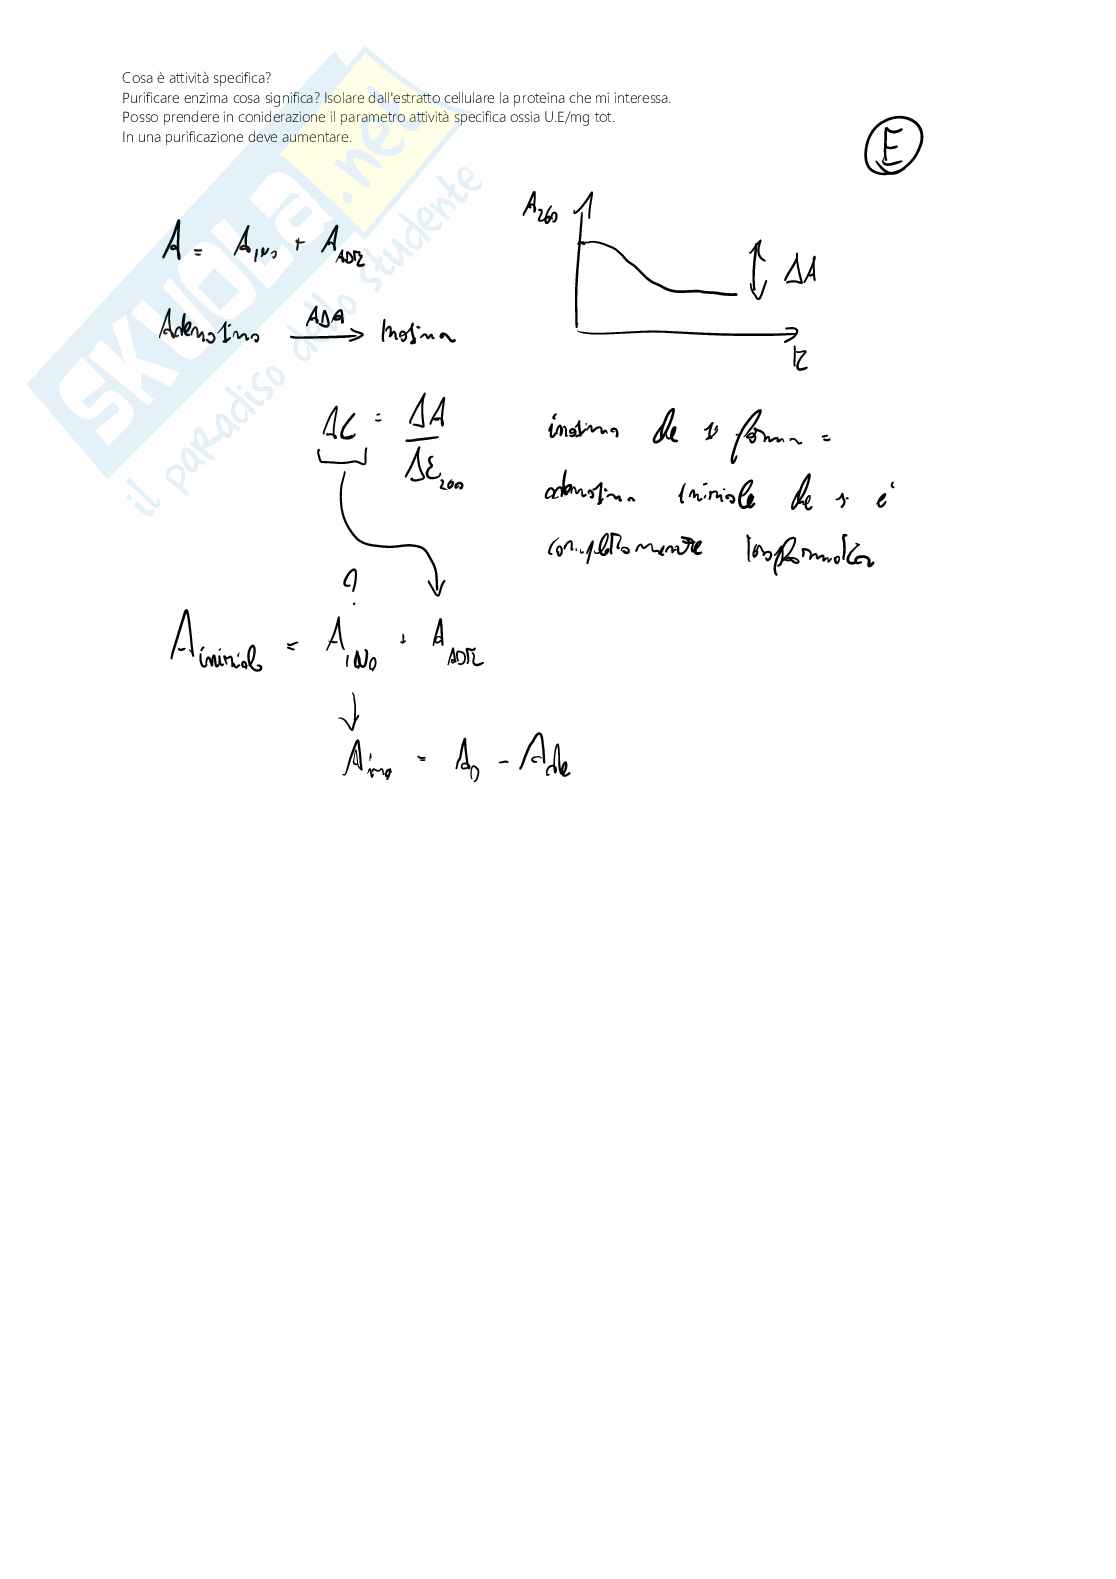 Cosa è attività specifica?
Purificare enzima cosa significa? Isolare dall'estratto cellulare la proteina che mi interessa.
Posso prendere in coniderazione il parametro attività specifica ossia U.E/mg tot.
In una purificazione deve aumentare.
E
SKUOLA.net
il paradiso dello studente
A = A INO + A ADE
A260
ΔA
t
Adenosina ADA → Inosina
ΔC = ΔA / Δε260
inosina che si forma =
adenosina iniziale che si è
completamente trasformata
?
A iniziale = A INO + A ADE
A ino = A0 - A ade